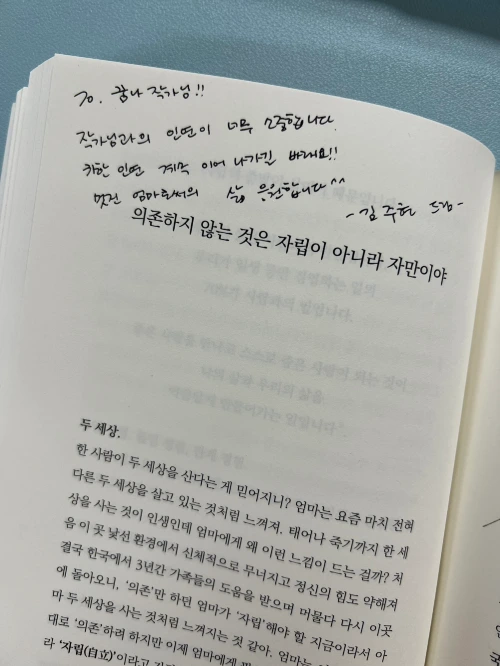 To. 꿈나 작가님!!
작가님과의 인연이 너무 소중합니다.
귀한 인연 계속 이어 나가길 바래요!!
멋진 엄마로써의 삶 응원합니다^^
- 김주현 드림-
의존하지 않는 것은 자립이 아니라 자만이야
두 세상.
한 사람이 두 세상을 산다는 게 믿어지니? 엄마는 요즘 마치 전혀
다른 두 세상을 살고 있는 것처럼 느껴져. 태어나 죽기까지 한 세
상을 사는 것이 인생인데 엄마에게 왜 이런 느낌이 드는 걸까? 처
음 이 곳 낯선 환경에서 신체적으로 무너지고 정신의 힘도 약해져
결국 한국에서 3년간 가족들의 도움을 받으며 머물다 다시 이곳
에 돌아오니, '의존'만 하던 엄마가 '자립'해야 할 지금이라서 아
마 두 세상을 사는 것처럼 느껴지는 것 같아. 엄마는
대로 '의존'하려 하지만 이제 엄마에게
라 '자립(自立)'이라고